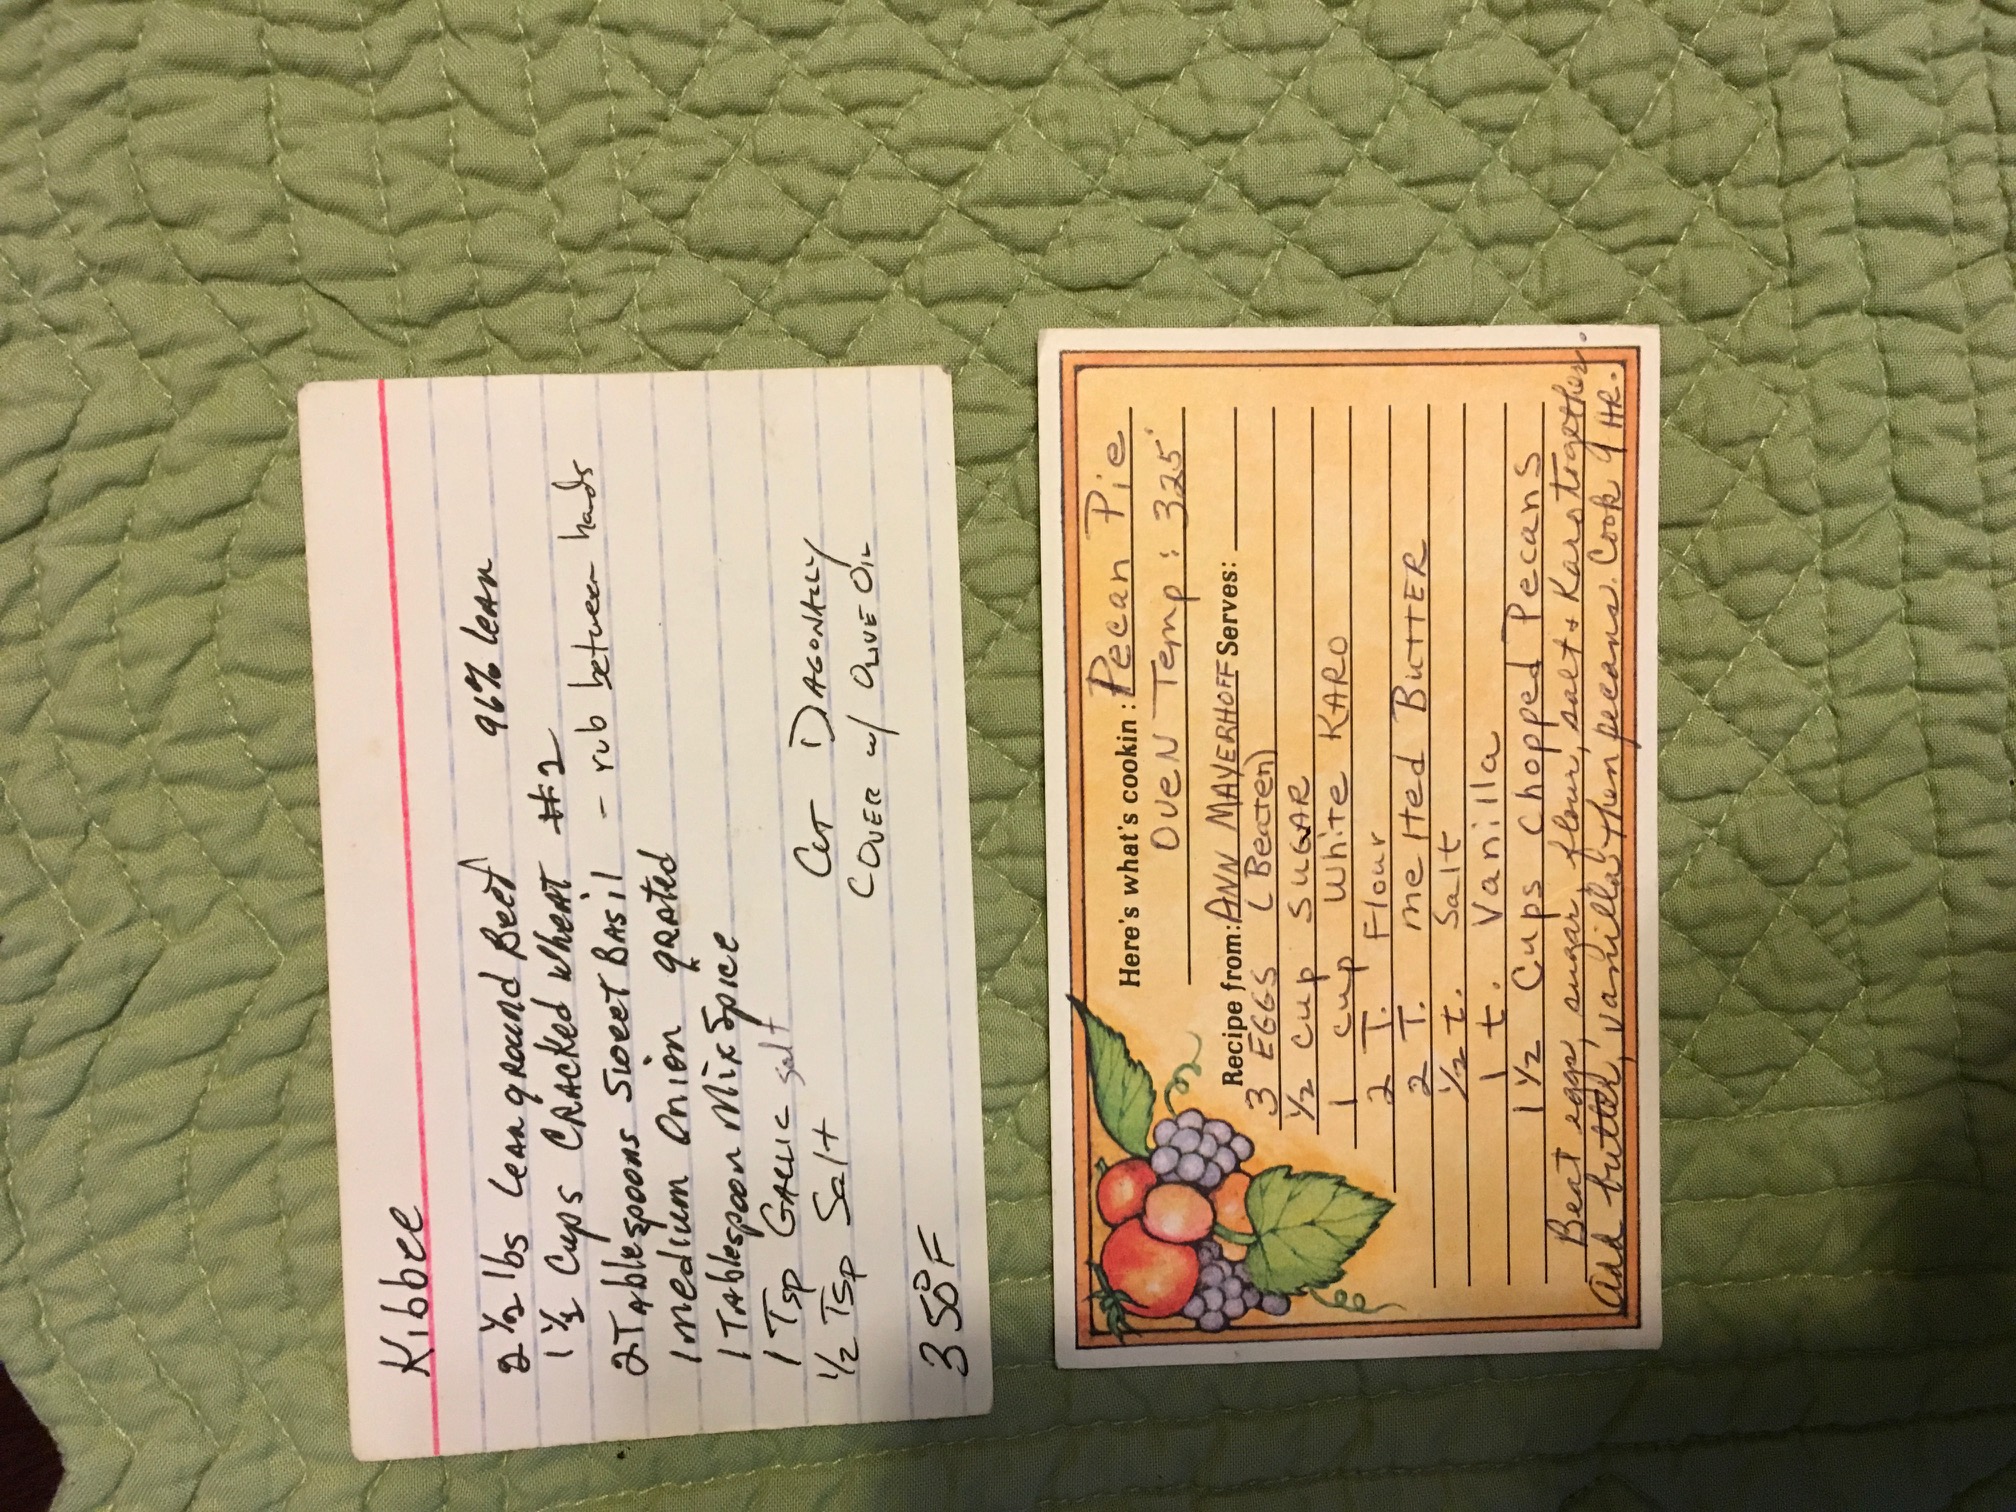 Kibbee
2 1/2 lbs Lean ground Beef 96% lean
1 1/2 Cups CRACKed WHEAT #2
2 TAblespoons Sweet BASil - rub between hands
1 medium Onion gRAted
1 TAblespoon Mix Spice
1 Tsp GARLIC salt
1/2 Tsp Salt
CUT DIAGONALLY
COVER w/ OLIVE OIL
350°F
Here's what's cookin: Pecan Pie
OVeN Temp: 325°
Recipe from: ANN MAYERHOFF Serves:
3 EGGS (Beaten)
1/2 cup SUGAR
1 cup White KARO
2 T. Flour
2 T. melted BUTTER
1/2 t. Salt
1 t. Vanilla
1 1/2 Cups chopped Pecans
Beat eggs, sugar, flour, salt & Karo together.
Add butter, vanilla then pecans. Cook 1 HR.